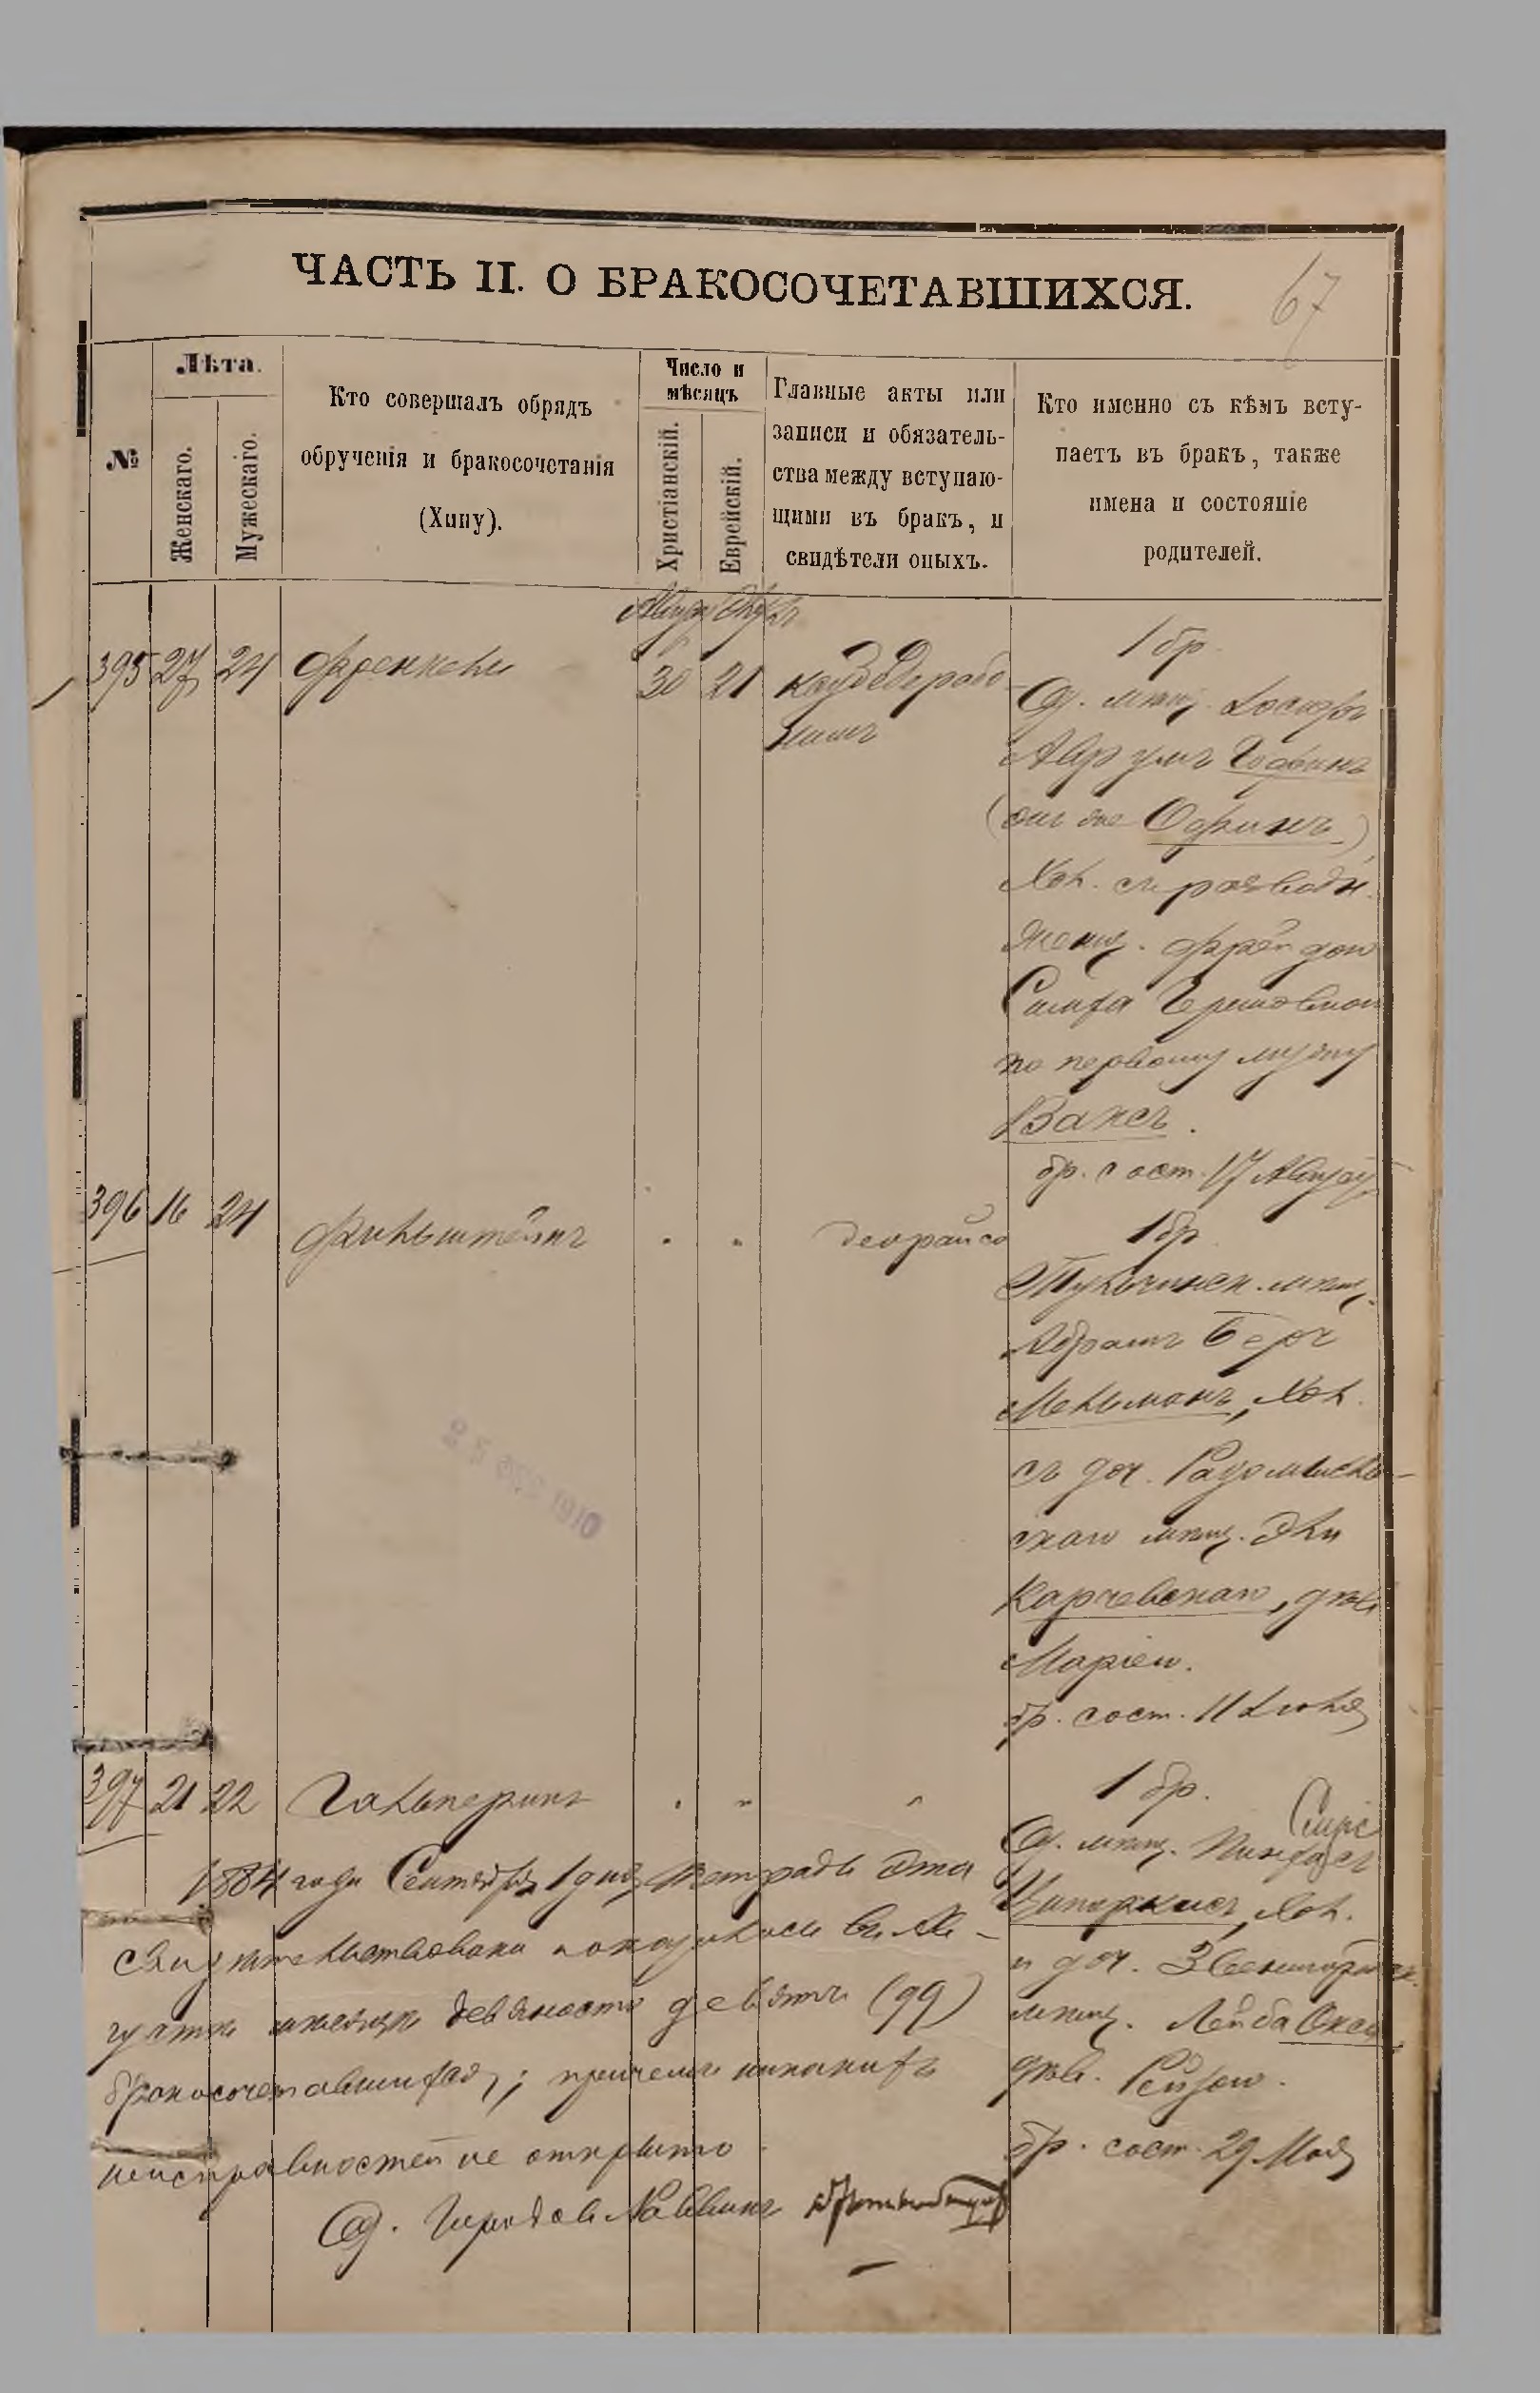 ЧАСТЬ II. О БРАКОСОЧЕТАВШИХСЯ.
67
№
Лѣта.
Женскаго.
Мужескаго.
Кто совершалъ обрядъ
обрученія и бракосочетанія
(Хипу).
Число и
мѣсяцъ
Христіанскій.
Еврейскій.
Главные акты или
записи и обязатель-
ства между вступаю-
щими въ бракъ, и
свидѣтели оныхъ.
Кто именно съ кѣмъ всту-
паетъ въ бракъ, также
имена и состояніе
родителей.
395 27 24 Френкель 30 21
1 бр.
Од. мѣщ. Іосифъ
Аврумъ Гофинъ
(онъ же Офинъ)
Хол. съ разводн.
женщ.
Симха Гершковной
по первому мужу
Ваксъ.
бр. сост. 17 Августа
396 16 24 Финкельштейнъ " " деорайсо
1 бр.
Тульчинск. мѣщ.
Абрамъ Беръ
Мельманъ, Хол.
съ доч. Радомысль-
скаго мѣщ. Эли
Карчевскаго, дѣв.
Маріею.
бр. сост. 11 Іюля
397 21 22 Гальперинъ " " "
1 бр.
Од. мѣщ. Пинхасъ
Ципоркисъ, Хол.
и доч. Звенигородск.
мѣщ. Лейба
дѣв. Рейзею.
бр. сост. 29 Мая
1884 года Сентября 1 дня тетрадь эта
свидѣтельствована оказалось въ Ав-
густѣ мѣсяцѣ девяносто девять (99)
бракосочетавшихся; причемъ никакихъ
неисправностей не открыто
Од. Городовой Раввинъ